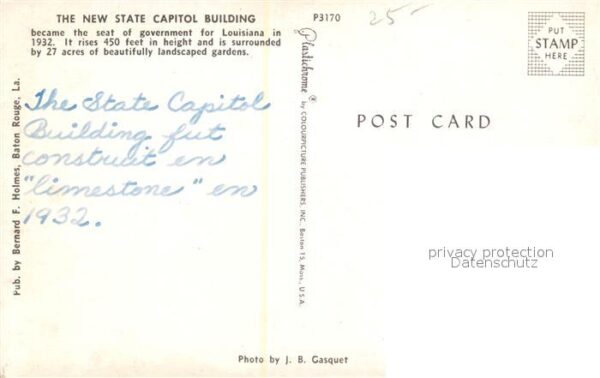 THE NEW STATE CAPITOL BUILDING
became the seat of government for Louisiana in
1932. It rises 450 feet in height and is surrounded
by 27 acres of beautifully landscaped gardens.
The State Capitol
Building fut
construit en
"limestone" en
1932.
Pub. by Bernard F. Holmes, Baton Rouge, La.
Plastichrome® by COLOURPICTURE PUBLISHERS, INC. Boston 15, Mass., U.S.A.
P3170
25-
PUT
STAMP
HERE
POST CARD
privacy protection
Datenschutz
Photo by J. B. Gasquet